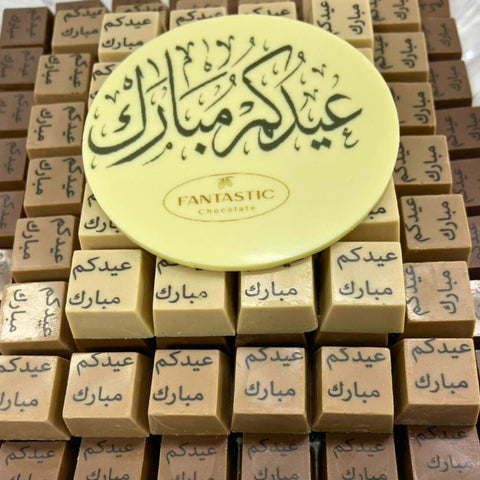 عِيدُكُمْ مُبَارَك
FANTASTIC
Chocolate
عيدكم
مبارك
عيدكم
مبارك
عيدكم
مبارك
عيدكم
مبارك
عيدكم
مبارك
عيدكم
مبارك
عيدكم
مبارك
عيدكم
مبارك
عيدكم
مبارك